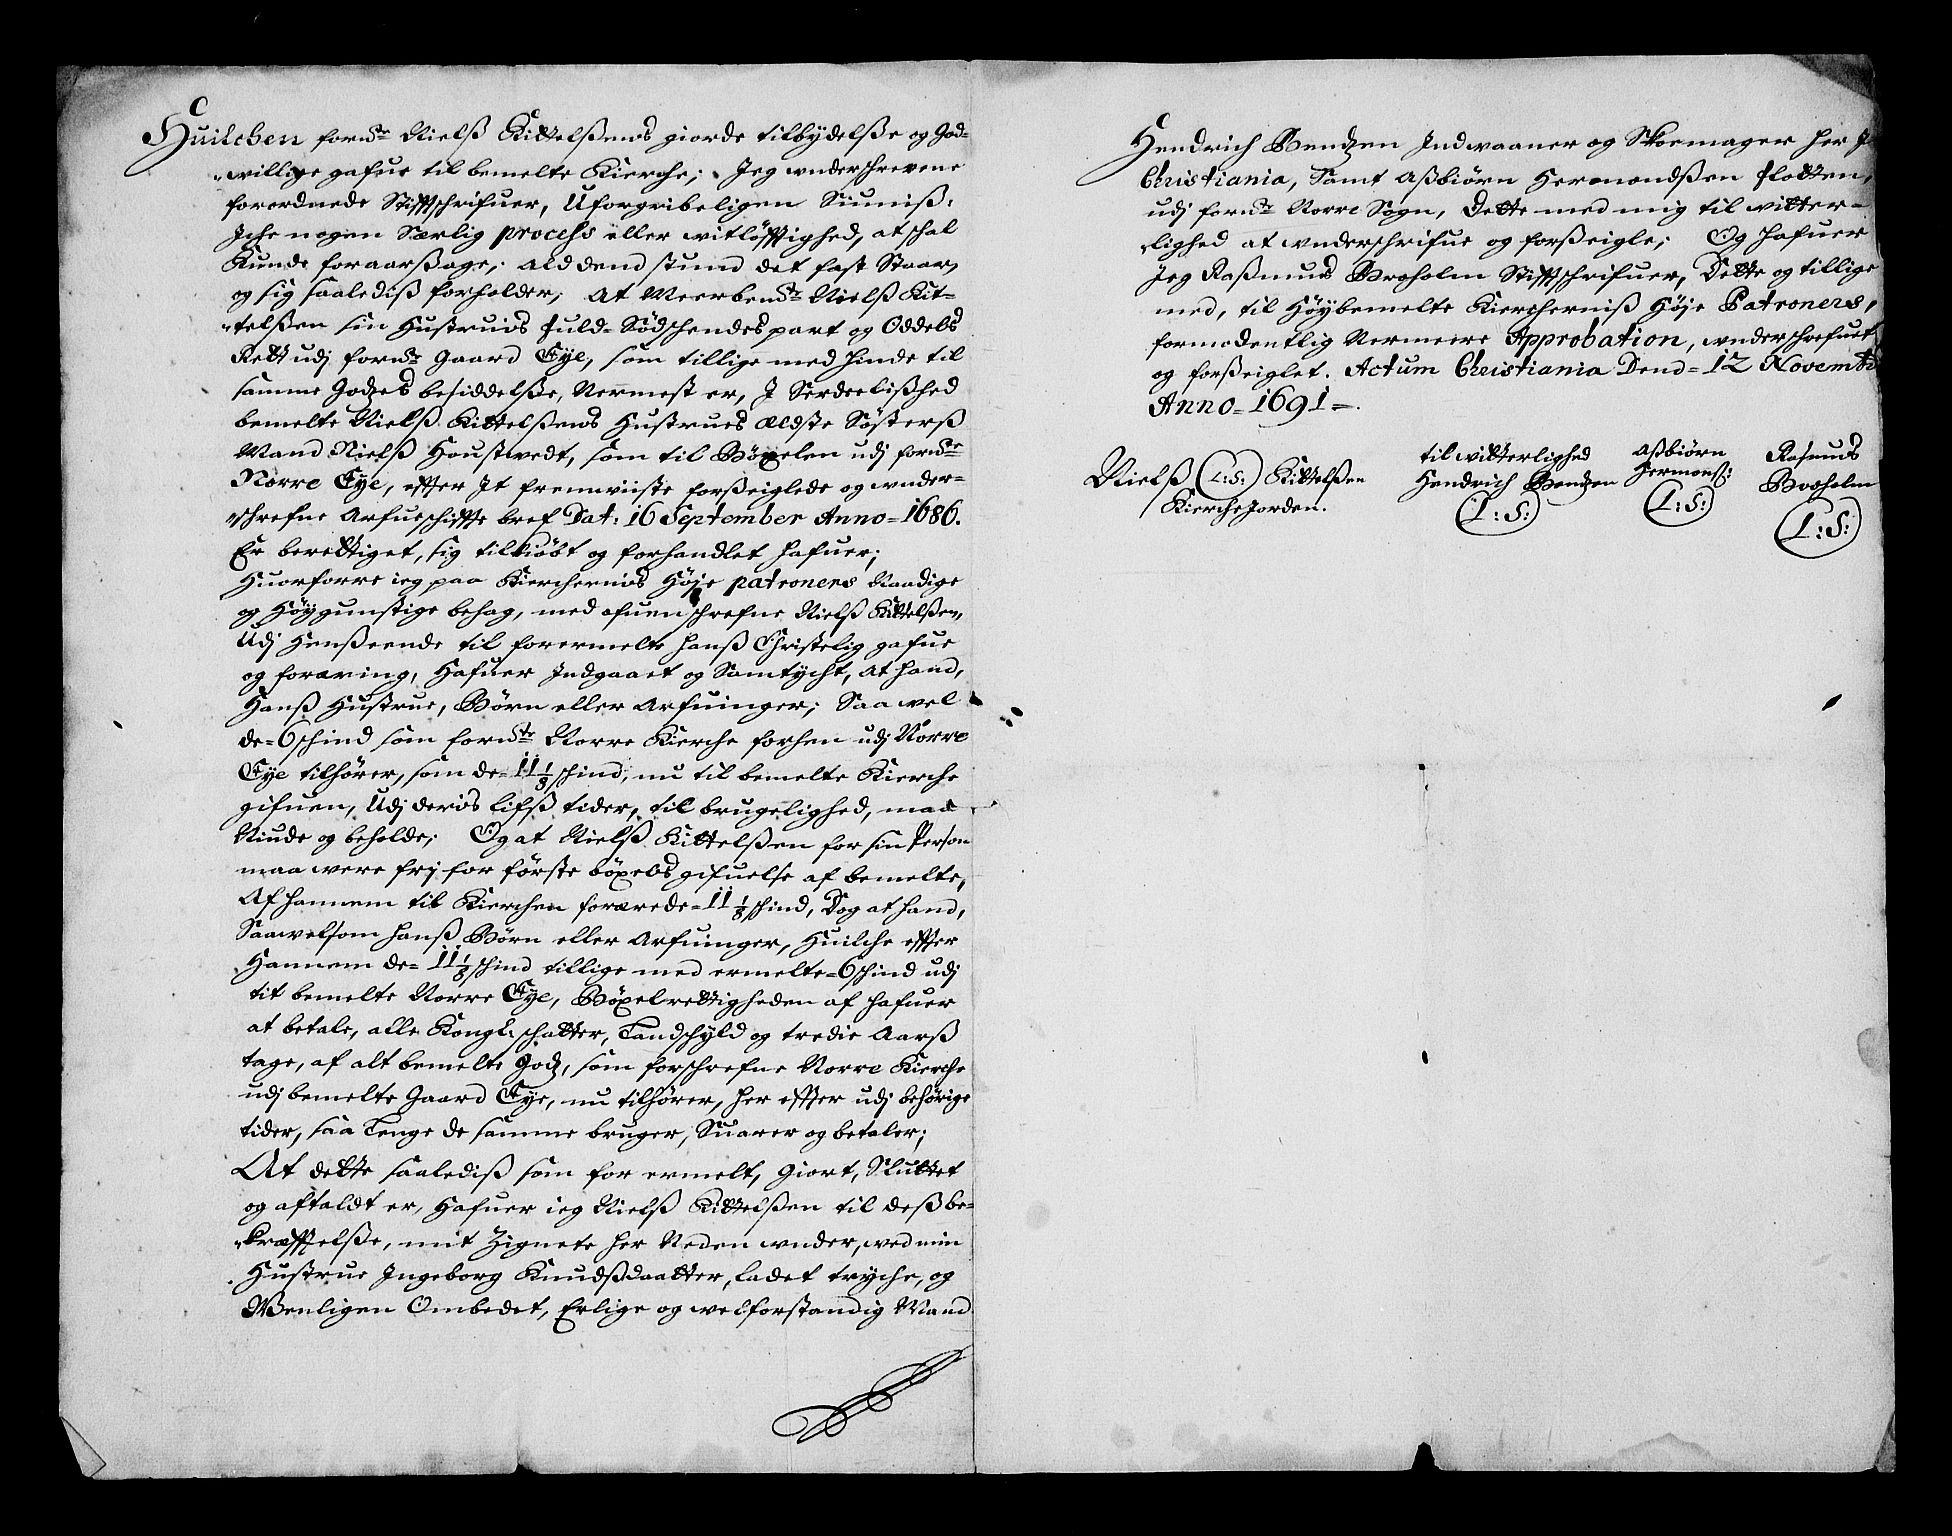 Huilchen fornde Nielß Kittelßens giorde tilbydelße og God-
willige gafue til bemelte Kierche; Jeg underschrevene
forordnede Stifftschrifuer, Uforgribeligen Siuniß,
Iche nogen Særlig process eller witløfftighed, at schal
Kunde foraarßage; ald dend stund det fast Staar,
og sig saalediß forholder, At Meerbente Nielß Kit-
telßen sin Hustruis fuld Södschendes part og Oddels
Rett udj fornte Gaard Eye, som tillige med hinde til
samme Godzes besiddelße, Nermest er, I Serdeelißhed
bemelte Nielß Kittelßens Hustrues Ældste Söster ß
Mand Nielß Houstwedt, som til Böxelen udj fornde
Norre Eye, effter It fremwiiste forßeiglede og under-
schrefne Arfueschiffte bref Dat: 16 September Anno=1686.
Er berettiget, sig tilkiöbt og forhandlet hafuer;
Huorforre ieg paa Kierchernis Höje patroners Naadige
og Höygunstige behag, med ofuenschrefne Nielß Kittelßen,
Udj Henßeende til forermelte hanß Christelig gafue
og foræring, Hafuer Indgaaet og Samtycht, at hand,
Hanß Hustrue, Börn eller Arfuinger; Saa wel
de=6 schind som fornte Norre Kierche forhen udj Norre
Eye tilhörer, som de=11 1/8 schind, nu til bemelte Kierche
gifuen, Udj deris lifß tider, til brugelighed, maa
Niude og beholde; Og at Nielß Kittelßen for sin Person
maa were frj for förste böxels gifuelse af bemelte,
Af hannem til Kierchen forærede=11 1/8 schind, Dog at hand,
Saawelsom hanß Börn eller Arfuinger, Huilche effter
Hannem de=11 1/8 schind tillige med ermelte=6 schind udj
tit bemelte Norre Eye, Böxelrettigheden af hafuer
at betale, alle Kongl: schatter, Landschyld og tredie Aarß
tage, af alt bemelte Godz, som forschrefne Norre Kierche
udj bemelte Gaard Eye, nu tilhörer, her effter udj behörige
tider, saa Lenge de samme bruger, Suarer og betaler;
At dette saalediß som for ermelt, giort, Sluttet
og aftaldt er, Hafuer ieg Nielß Kittelßen til deß be-
kræfftelße, mit Zignete her Neden under, wed min
Hustrue Ingeborg Knudßdaatter, ladet tryche, og
Wenligen Ombedet, Erlige og welforstandig Mand
Hendrich Bendzen Indwaaner og Skoemager her I
Christiania, Samt Aßbiörn Hermondßen Flotten,
udj fornte Norre Sogn, Dette med mig til witter-
lighed at underschrifue og forßeigle; Og hafuer
Jeg Raßmus Broholm Stifftschrifuer, Dette og tillige
med, til Höybemelte Kiercherniß Höje Patroners,
formodentlig Nermeere Approbation, underschrefuet
og forßeiglet. Actum Christiania Dend=12 Novembr
Anno=1691=.
Nielß (L:S:) Kittelßen
KiercheJorden.
til witterlighed
Hendrich Bendzen
(L:S:)
Aßbiörn
Hermonß:
(L:S:)
Rasmus
Broholm
(L:S:)